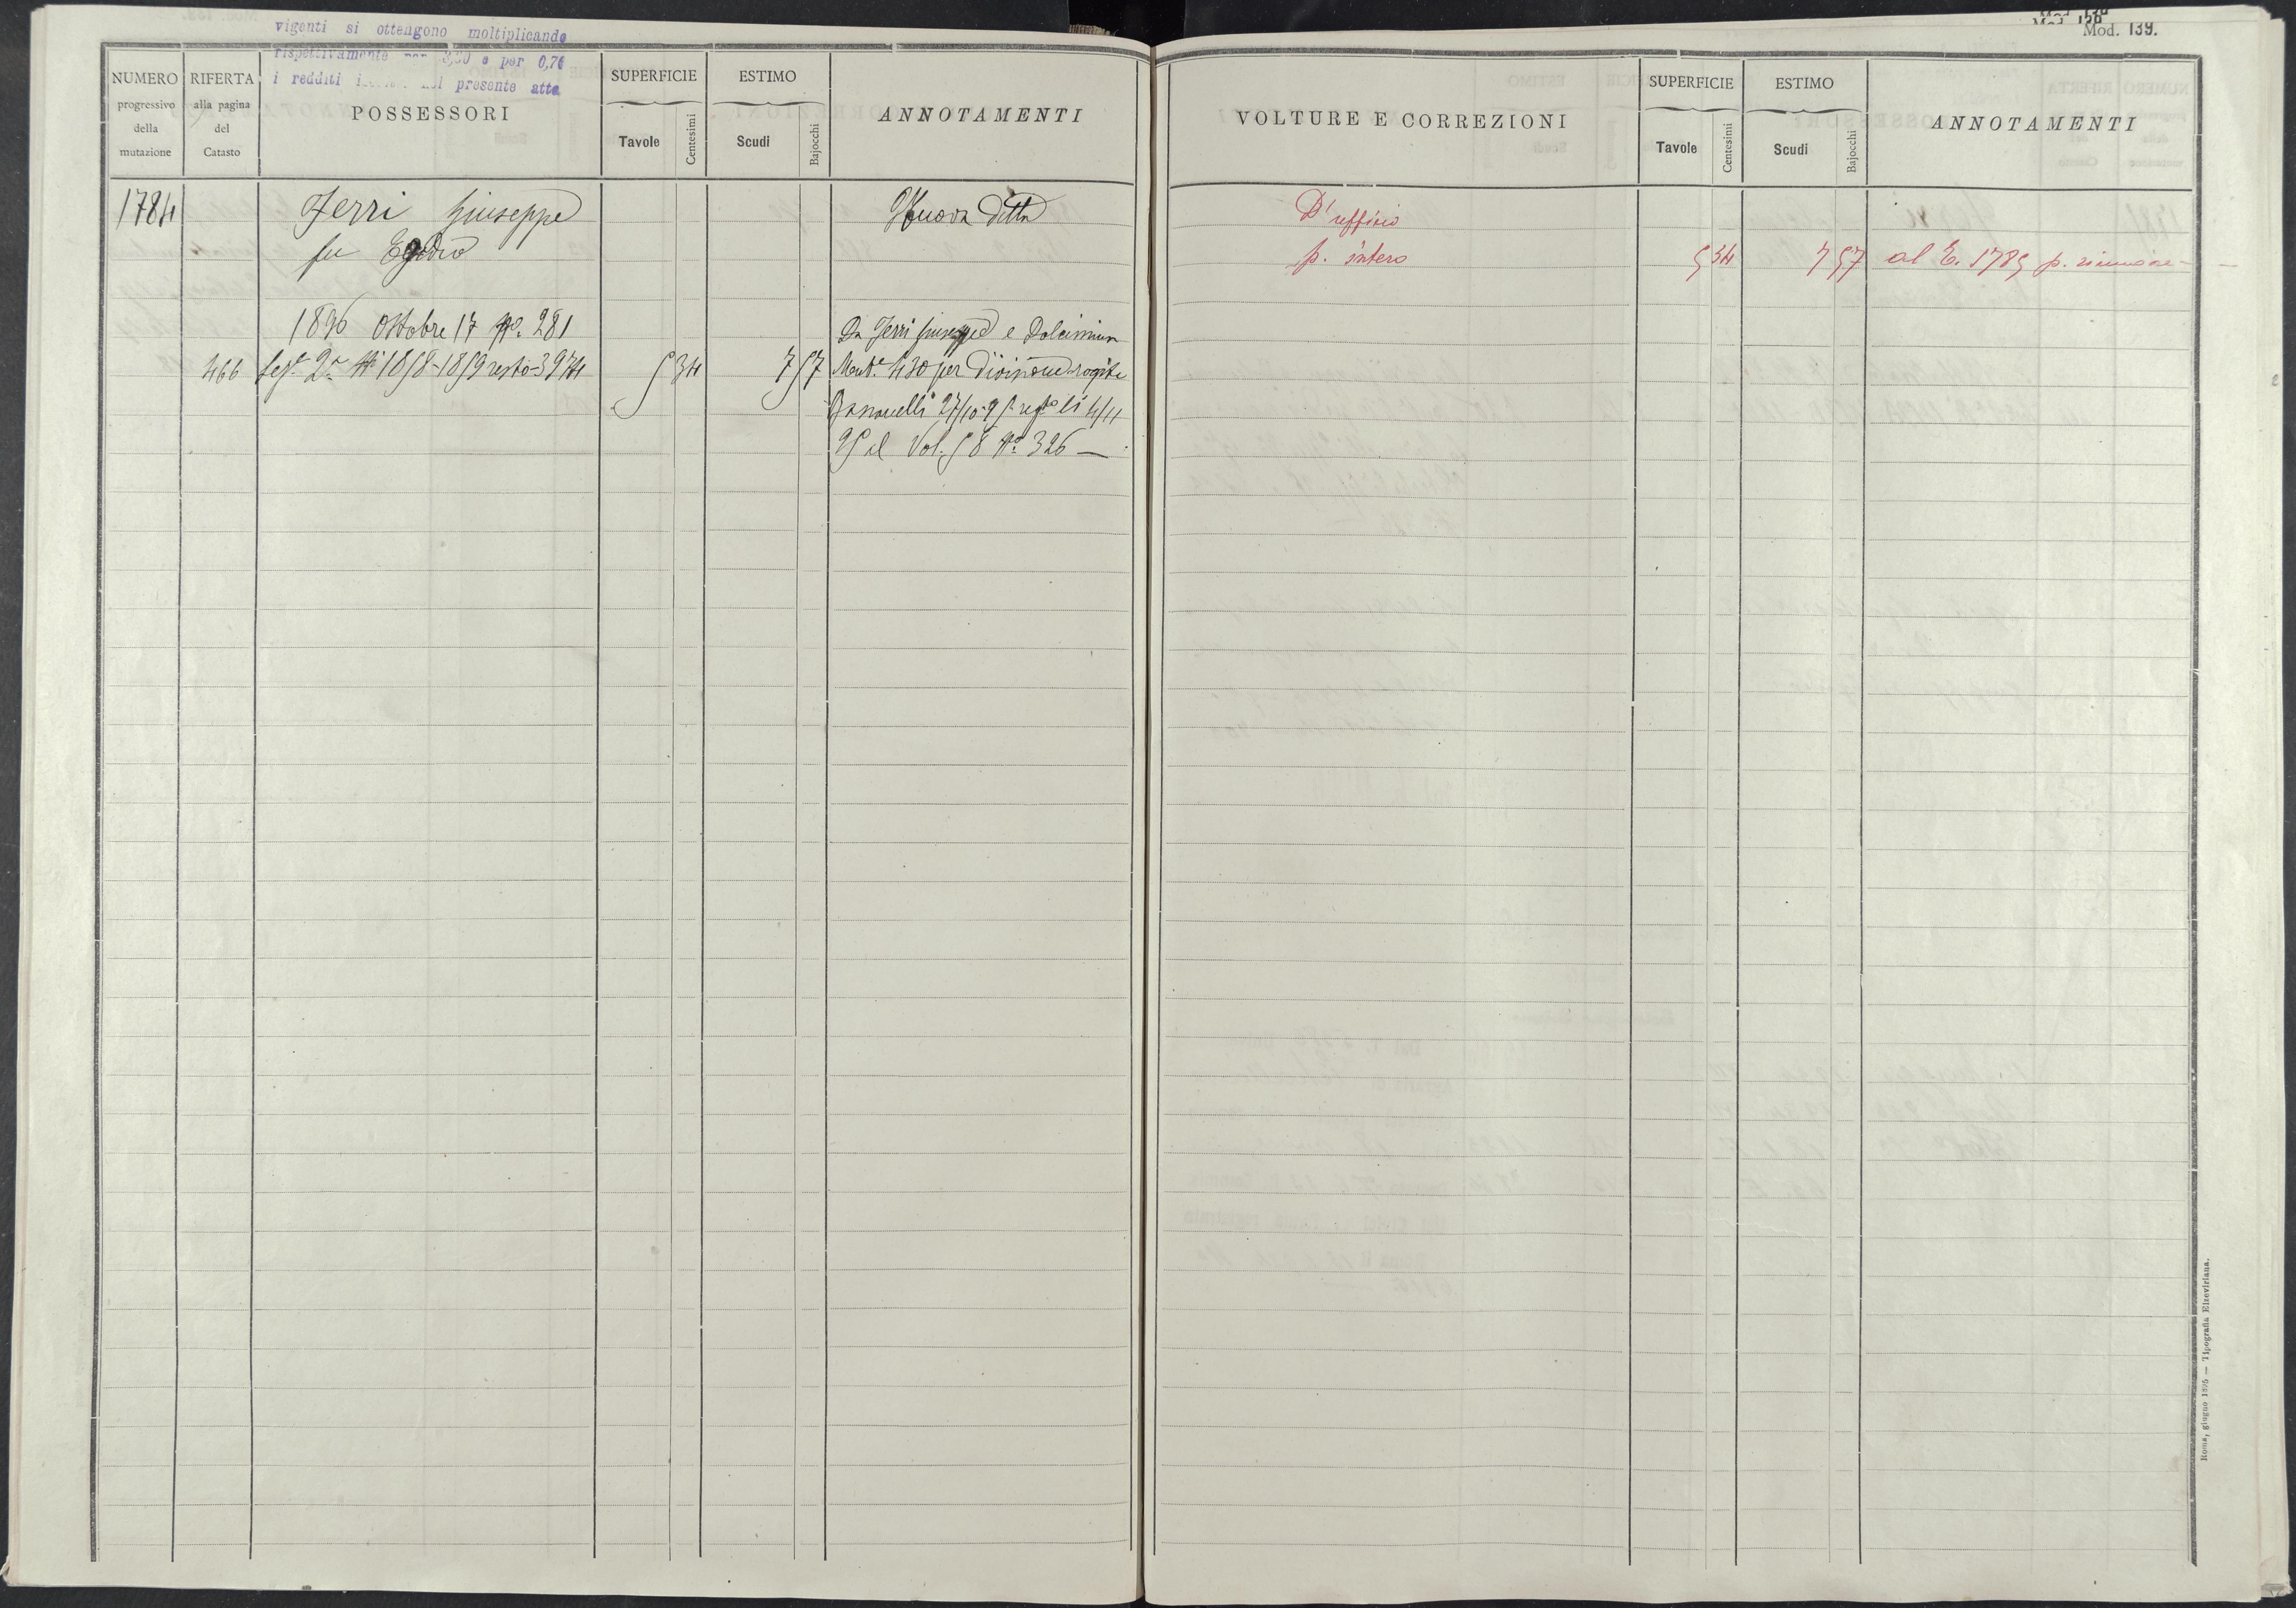 vigenti si ottengono moltiplicando
rispettivamente per e per 0,76
i redditi presente atto
Mod. 139.
NUMERO progressivo della mutazione
RIFERTA alla pagina del Catasto
POSSESSORI
SUPERFICIE
Tavole Centesimi
ESTIMO
Scudi Bajocchi
ANNOTAMENTI
1784 Ferri Giuseppe Nuova Ditta
fu Egidio
1896 Ottobre 17 No. 281 Da Ferri Giuseppe e
466 Sez.e 2a Ni 1858-1859 resto-3974 5 34 7 57 Mont.e 430 per divisione rogito
Zannelli 27/10-95 regto li 4/11
95 al Vol. 58 No. 326 —
VOLTURE E CORREZIONI
SUPERFICIE
Tavole Centesimi
ESTIMO
Scudi Bajocchi
ANNOTAMENTI
D'ufficio
p. intero 5 34 7 57 al E. 1785 p. riunione —
Roma, giugno 1895 — Tipografia Elzeviriana.